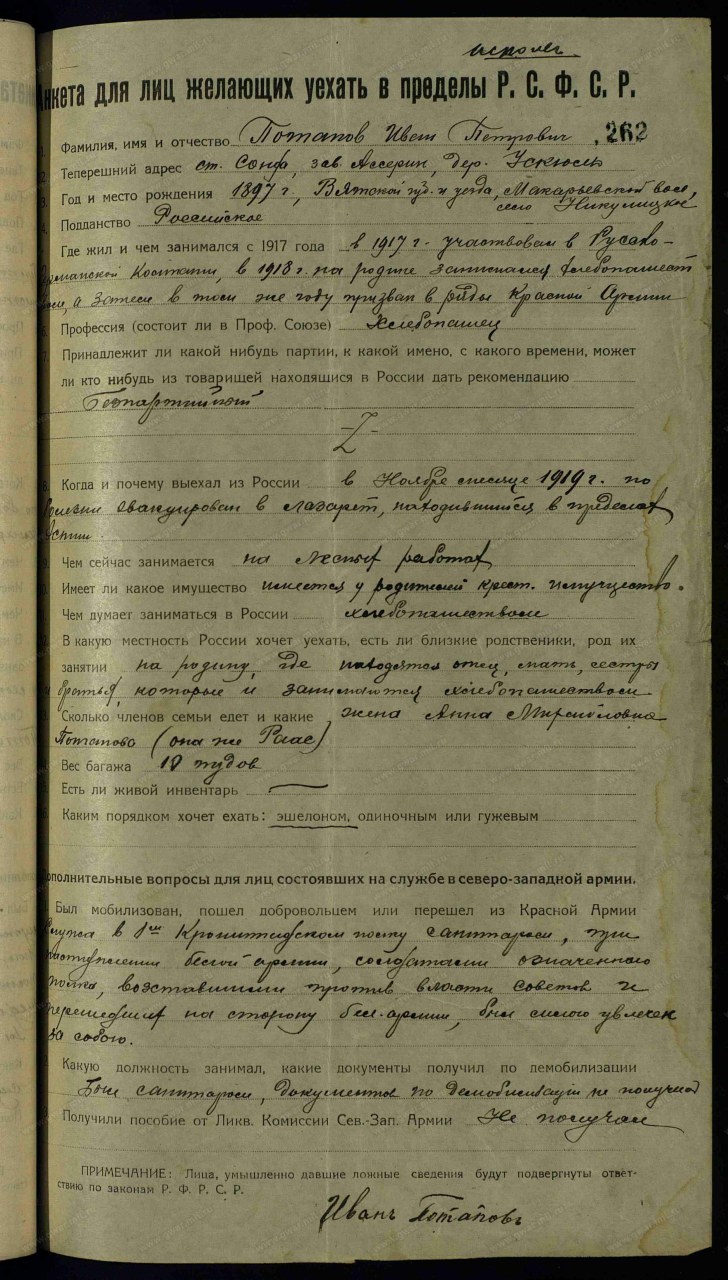 исполн
Анкета для лиц желающих уехать в пределы Р. С. Ф. С. Р.
Фамилия, имя и отчество Потапов Иван Петрович, 262
2. Теперешний адрес ст. Сонда, зав Ассерин, дер. Ускюль
3. Год и место рождения 1897 г., Вятской губ. и уезда, Макарьевской вол.,
село Никулицкое
4. Подданство Российское
Где жил и чем занимался с 1917 года в 1917 г. участвовал в Русско-
Германской Компании, в 1918 г. на родине занимался хлебопашест
вом, а затем в том же году призван в ряды Красной Армии
6. Профессия (состоит ли в Проф. Союзе) Хлебопашец
7. Принадлежит ли какой нибудь партии, к какой имено, с какого времени, может
ли кто нибудь из товарищей находящися в России дать рекомендацию
Безпартийный
-Z-
8. Когда и почему выехал из России в Ноябре месяце 1919 г. по
болезни эвакуирован в лазарет, находившийся в пределах
Эстии.
9. Чем сейчас занимается на лесных работах
10. Имеет ли какое имущество имеется у родителей крест. имущество.
Чем думает заниматься в России хлебопашеством
12. В какую местность России хочет уехать, есть ли близкие родственики, род их
занятии на родину, где находятся отец, мать, сестры
и братья, которые и занимаются хлебопашеством
Сколько членов семьи едет и какие жена Анна Михайловна
Потапова (она же Раас)
Вес багажа 10 пудов
Есть ли живой инвентарь —
Каким порядком хочет ехать: эшелоном, одиночным или гужевым
Дополнительные вопросы для лиц состоявших на службе в северо-западной армии.
Был мобилизован, пошел добровольцем или перешел из Красной Армии
Служа в 1ом Кронштадском полку санитаром, при
наступлении белой армии, солдатами означенного
полка, возставшими против власти советов и
перешедшие на сторону бел. армии, был силою увлечен
за собою.
Какую должность занимал, какие документы получил по демобилизации
Был санитаром, документов по демобилизации не получил
Получили пособие от Ликв. Комиссии Сев.-Зап. Армии Не получал
ПРИМЕЧАНИЕ: Лица, умышленно давшие ложные сведения будут подвергнуты ответ-
ствию по законам Р. Ф. Р. С. Р.
Иванъ Потаповъ